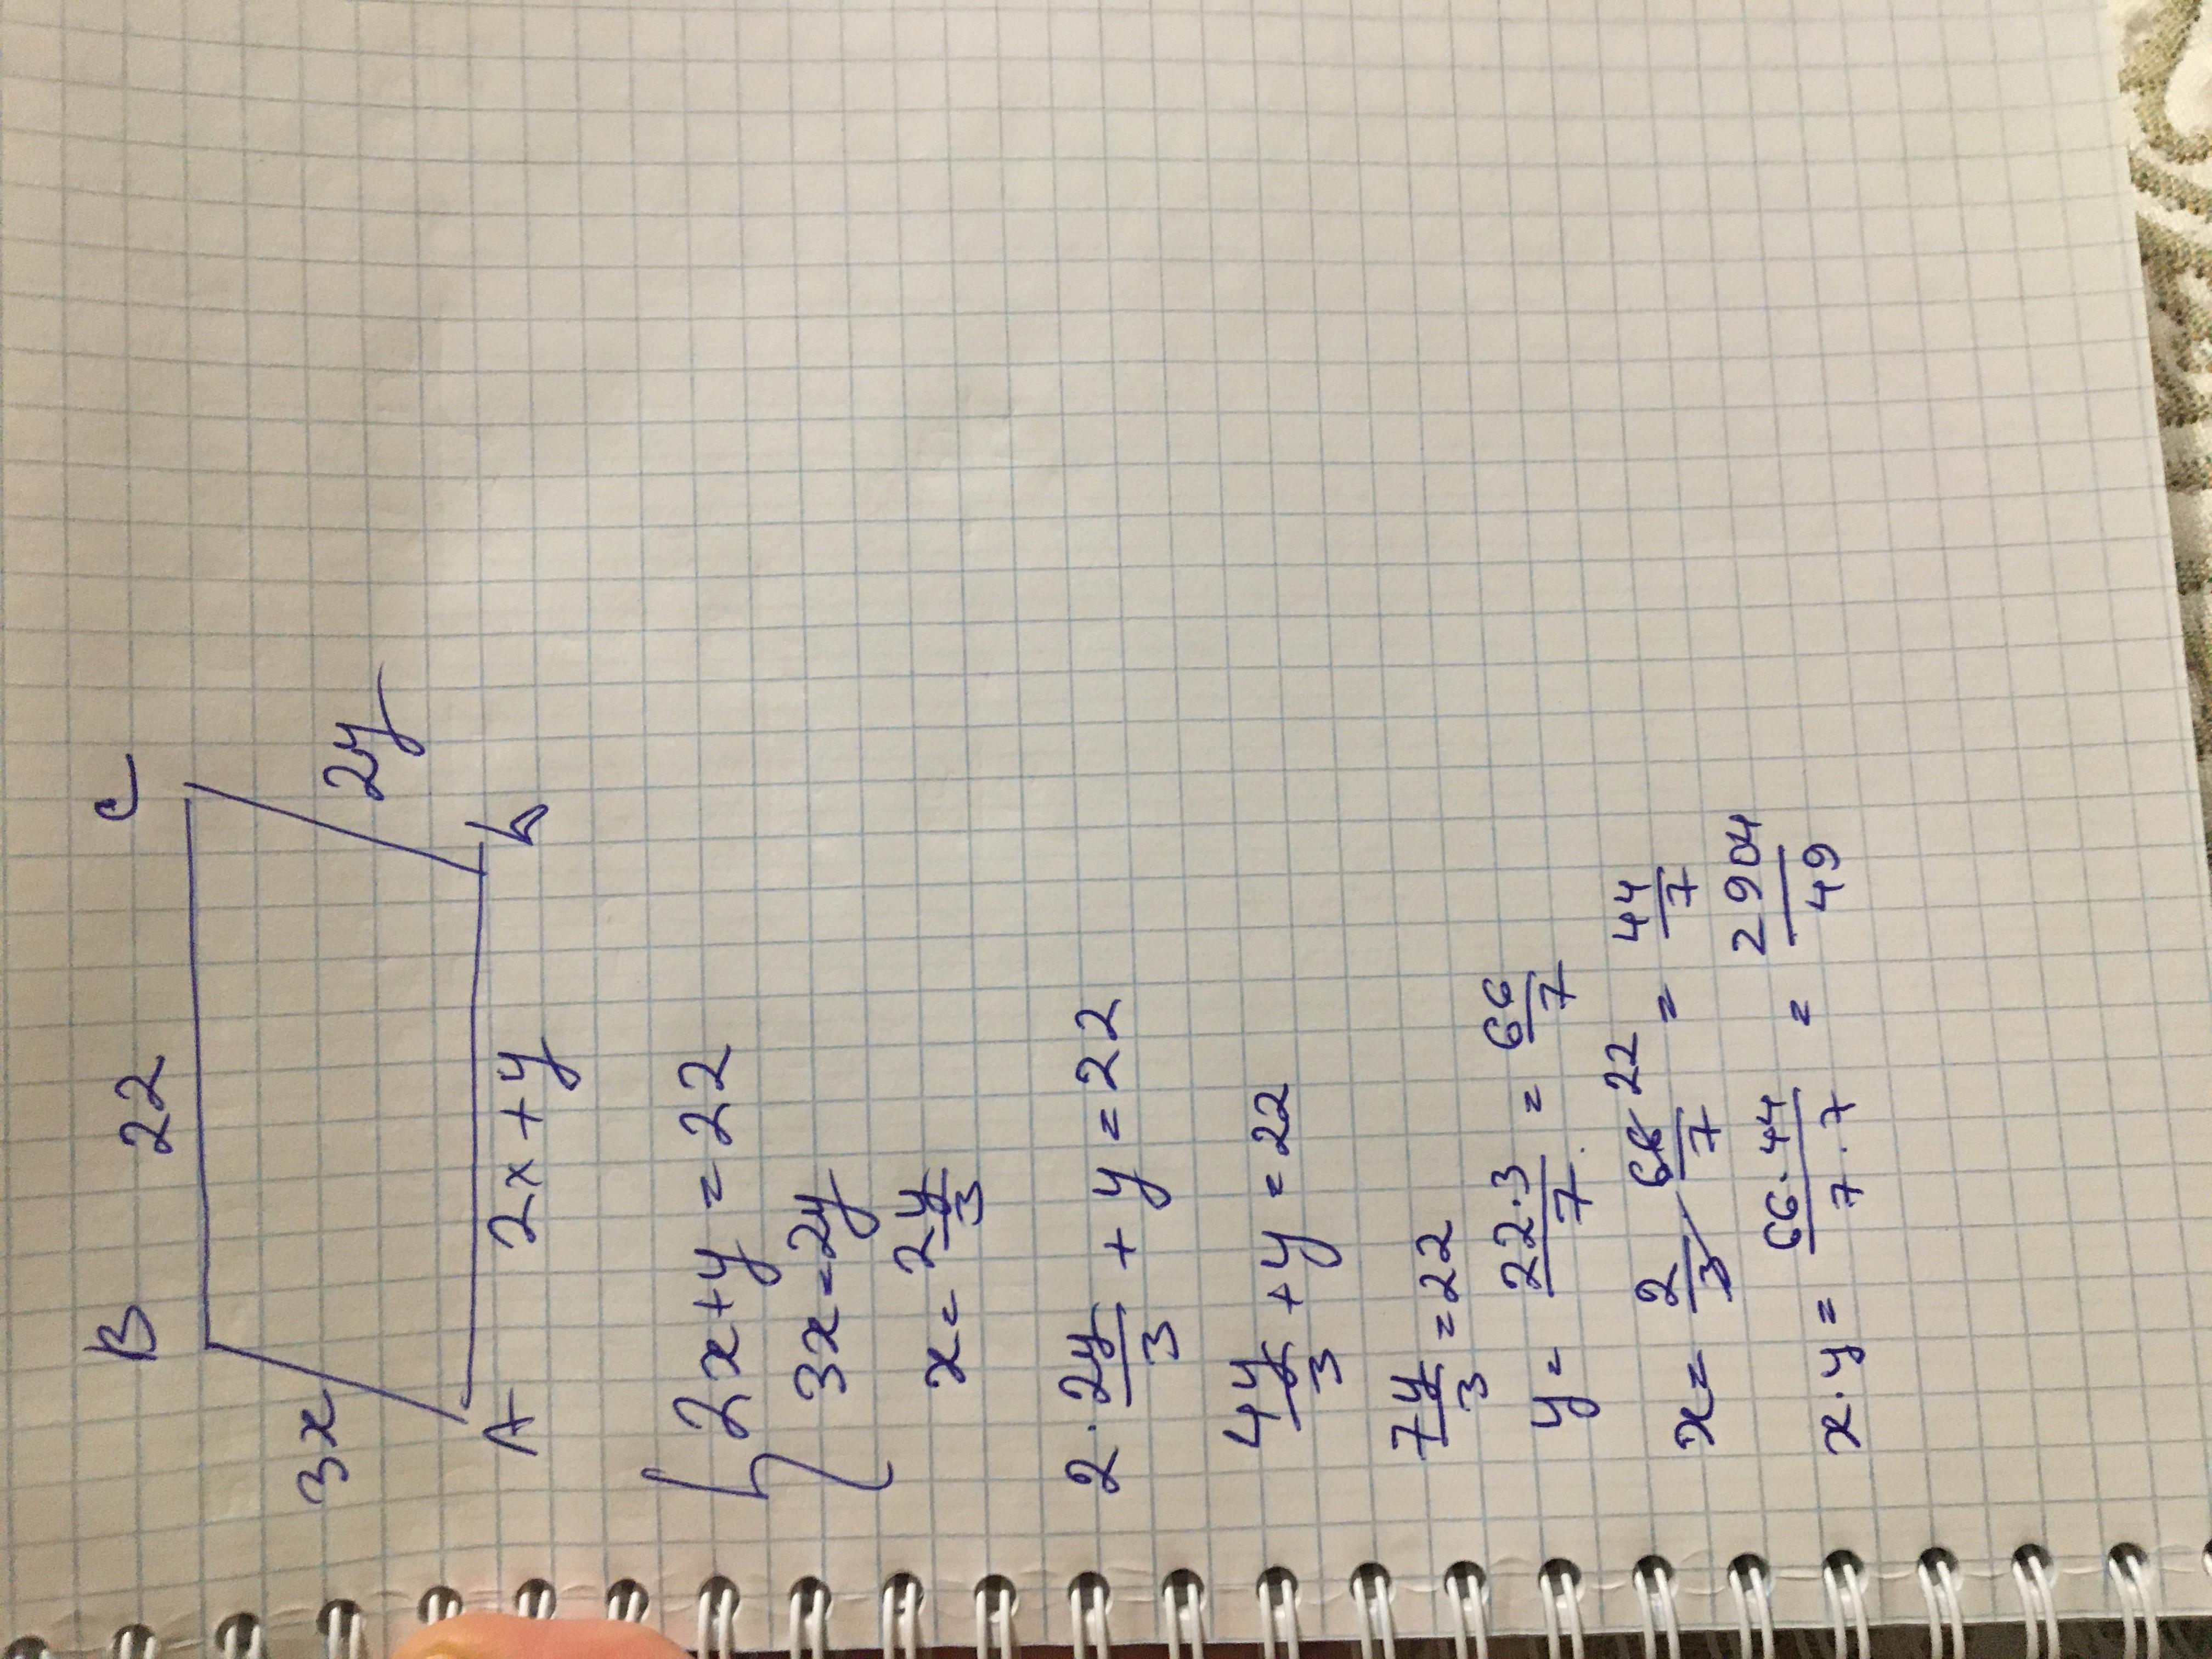 B 22 C
3x 2y
A 2x+y D
{ 2x+y=22
3x=2y
x = 2y/3
2 · 2y/3 + y = 22
4y/3 + y = 22
7y/3 = 22
y = 22·3/7 = 66/7
x = 2/3 66/7 22 = 44/7
x·y = 66·44/7·7 = 2904/49